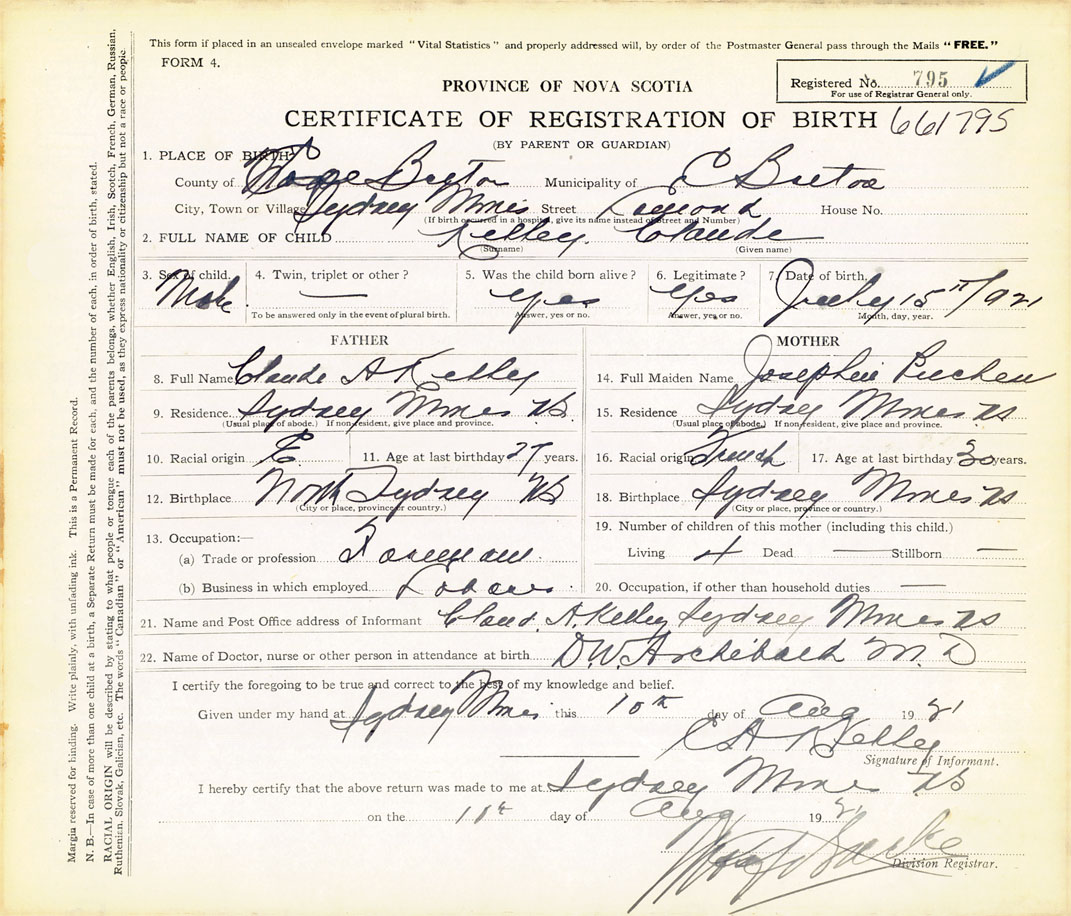 This form if placed in an unsealed envelope marked "Vital Statistics" and properly addressed will, by order of the Postmaster General pass through the Mails "FREE."
FORM 4.
Registered No. 795
For use of Registrar General only.
PROVINCE OF NOVA SCOTIA
CERTIFICATE OF REGISTRATION OF BIRTH 661795
(BY PARENT OR GUARDIAN)
1. PLACE OF BIRTH:
County of Cape Breton Municipality of C Breton
City, Town or Village Sydney Mines Street House No.
(If birth occurred in a hospital, give its name instead of Street and Number)
2. FULL NAME OF CHILD Kelley. Claude
(Surname) (Given name)
3. Sex of child. 4. Twin, triplet or other? 5. Was the child born alive? 6. Legitimate? 7. Date of birth.
Male — yes yes July 15th 1921
To be answered only in the event of plural birth. Answer, yes or no. Answer, yes, or no. Month, day, year.
FATHER MOTHER
8. Full Name Claude A Kelley
14. Full Maiden Name Josephine
9. Residence Sydney Mines NS
15. Residence Sydney Mines NS
(Usual place of abode.) If non-resident, give place and province.
(Usual place of abode.) If non-resident, give place and province.
10. Racial origin E 11. Age at last birthday 27 years.
16. Racial origin French 17. Age at last birthday 30 years.
12. Birthplace North Sydney NS
18. Birthplace Sydney Mines NS
(City or place, province or country.)
(City or place, province or country.)
13. Occupation:—
19. Number of children of this mother (including this child.)
(a) Trade or profession
Living 4 Dead — Stillborn —
(b) Business in which employed
20. Occupation, if other than household duties —
21. Name and Post Office address of Informant Claud. A. Kelley Sydney Mines NS
22. Name of Doctor, nurse or other person in attendance at birth D.W. Archibald M.D
I certify the foregoing to be true and correct to the best of my knowledge and belief.
Given under my hand at Sydney Mines this 10th day of Aug 1921
C A Kelley
Signature of Informant.
I hereby certify that the above return was made to me at Sydney Mines NS
on the day of Aug 1921
Division Registrar.
Margin reserved for binding. Write plainly, with unfading ink. This is a Permanent Record.
N. B.—In case of more than one child at a birth, a Separate Return must be made for each, and the number of each, in order of birth, stated.
RACIAL ORIGIN will be described by stating to what people or tongue each of the parents belongs, whether English, Irish, Scotch, French, German, Russian,
Ruthenian, Slovak, Galician, etc. The words "Canadian" or "American" must not be used, as they express nationality or citizenship but not a race or people